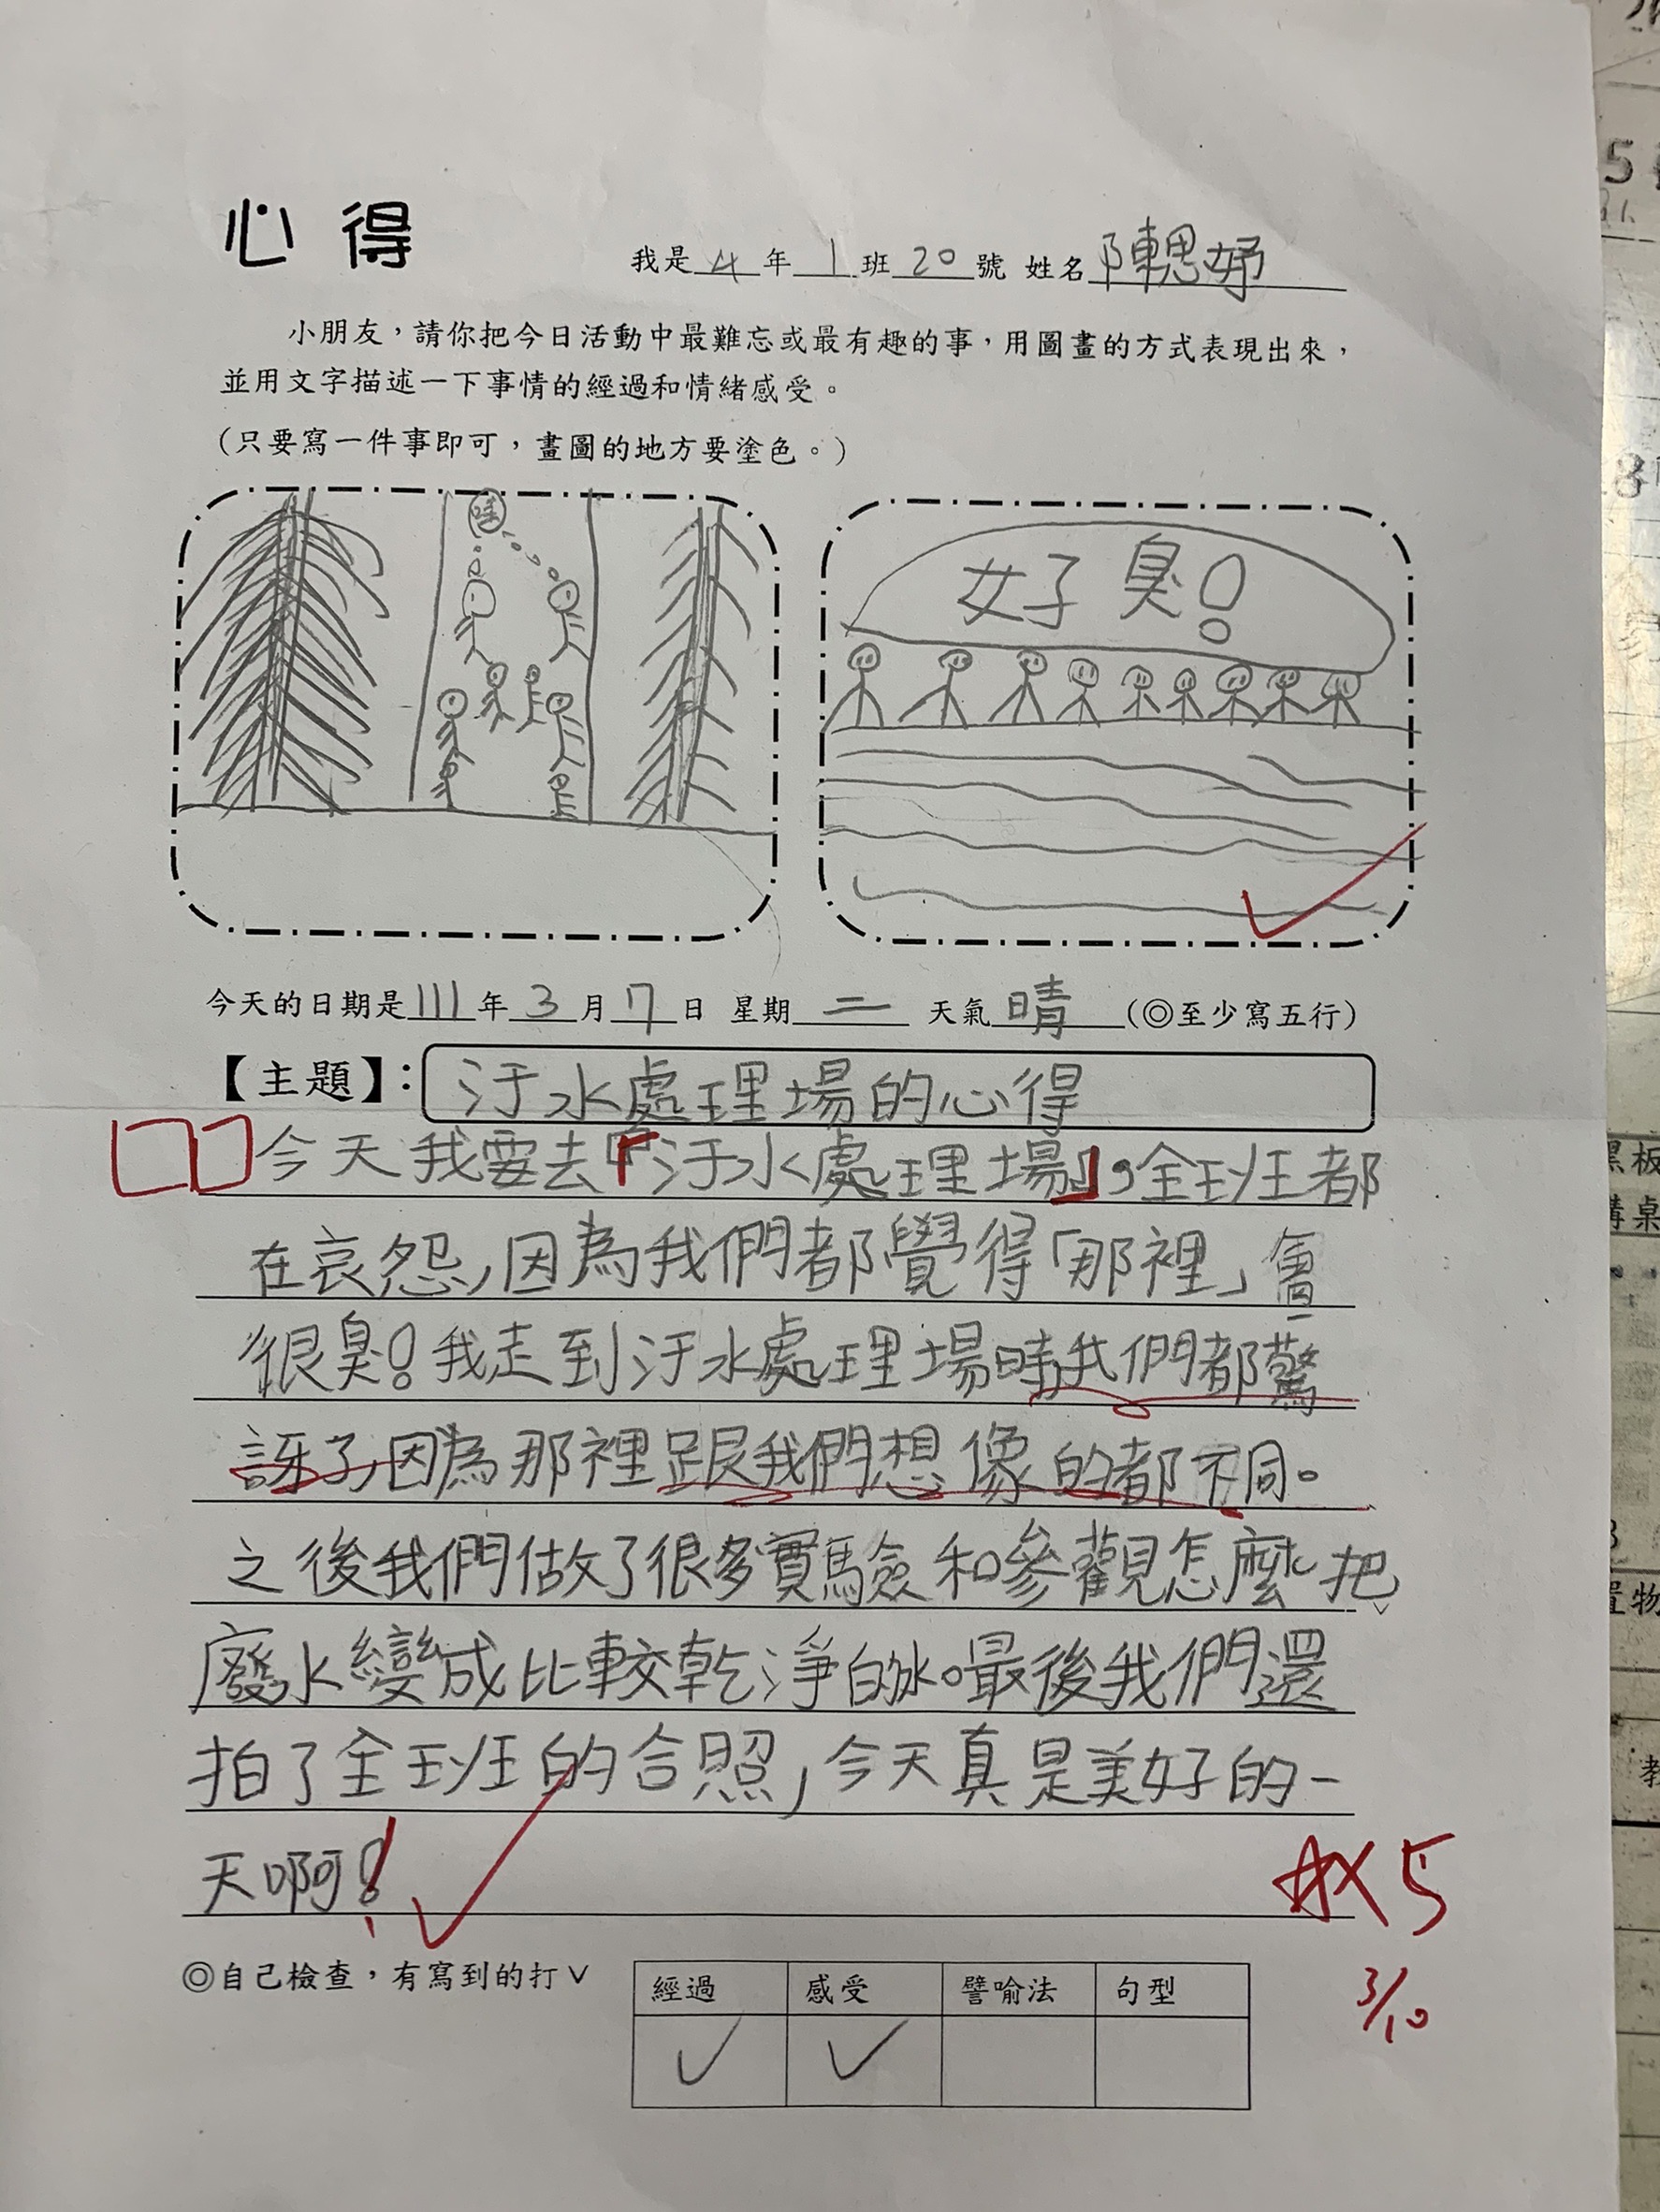 心得
我是4年1班20號 姓名陳思妤
小朋友，請你把今日活動中最難忘或最有趣的事，用圖畫的方式表現出來，
並用文字描述一下事情的經過和情緒感受。
（只要寫一件事即可，畫圖的地方要塗色。）
哇
好臭！
今天的日期是111年3月7日 星期二 天氣晴（◎至少寫五行）
【主題】：汙水處理場的心得
今天我要去「汙水處理場」，全班都
在哀怨，因為我們都覺得「那裡」會
很臭！我走到汙水處理場時，我們都驚
訝了，因為那裡跟我們想像的都不同。
之後我們做了很多實驗和參觀怎麼把
廢水變成比較乾淨的水。最後我們還
拍了全班的合照，今天真是美好的一
天啊！
☆×5
3/10
◎自己檢查，有寫到的打∨
經過 感受 譬喻法 句型